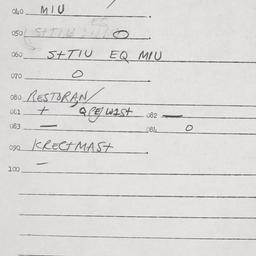 040 MIU
050 O
060 S+TIU EQ MIU
070 O
080 RESTORAN/
081 + 082 —
083 — 084 O
090 KRECTMAST
100 —